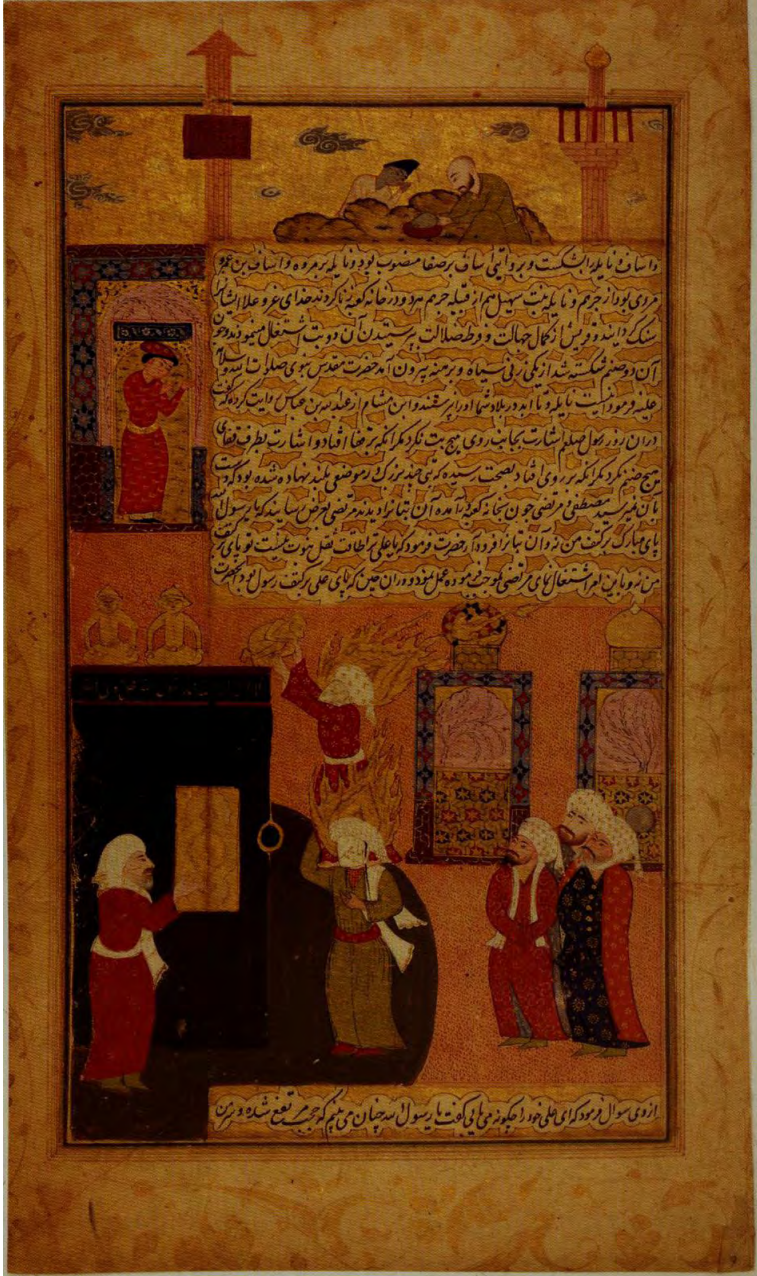 و اساف و نایله را بشکست و بروایتی اساف بر صفا منصوب بود و نایله بر مروه و اساف بن عمرو
مردی بود از جرهم و نایله بنت سهیل هم از قبیله جرهم بود و در خانه کعبه زنا کردند خدای عز و علا ایشانرا
سنک کردانید و قریش از کمال جهالت و فرط ضلالت بپرستیدن آن دو بت اشتغال مینمودند و چون
آن دو صنم شکسته شد از یکی زنی سیاه و برهنه بیرون آمد حضرت مقدس نبوی صلوات الله و سلامه
علیه فرمود اینست نایله و تا ابد در بلاد شما او را نپرستند و ابن هشام از عبدالله بن عباس روایت کرده که کفت
در ان روز رسول صلعم اشارت بجانب روی هیچ بت نکرد مکر انکه بر قفا افتاد و اشارت بطرف قفای
هیچ صنم نکرد مکر انکه بر روی افتاد بصحت رسیده که بتی چند بزرک در موضعی بلند نهاده شده بود که دست
بآن نمیرسید مصطفی و مرتضی چون بخانه کعبه درآمده آن بتانرا دیدند مرتضی بعرض رسانید که یا رسول الله
پای مبارک بر کتف من نه و آن بتانرا فرود آر حضرت فرمود که یا علی ترا طاقت ثقل نبوت نیست تو پای بر کتف
من نه و باین امر اشتغال نمای مرتضی بموجب فرموده عمل نمود و در ان حین که پای علی بر کتف رسول بود آنحضرت
از وی سوال فرمود که ای علی خود را چکونه می یابی کفت یا رسول الله چنان می بینم که حجب مرتفع شده و سر من